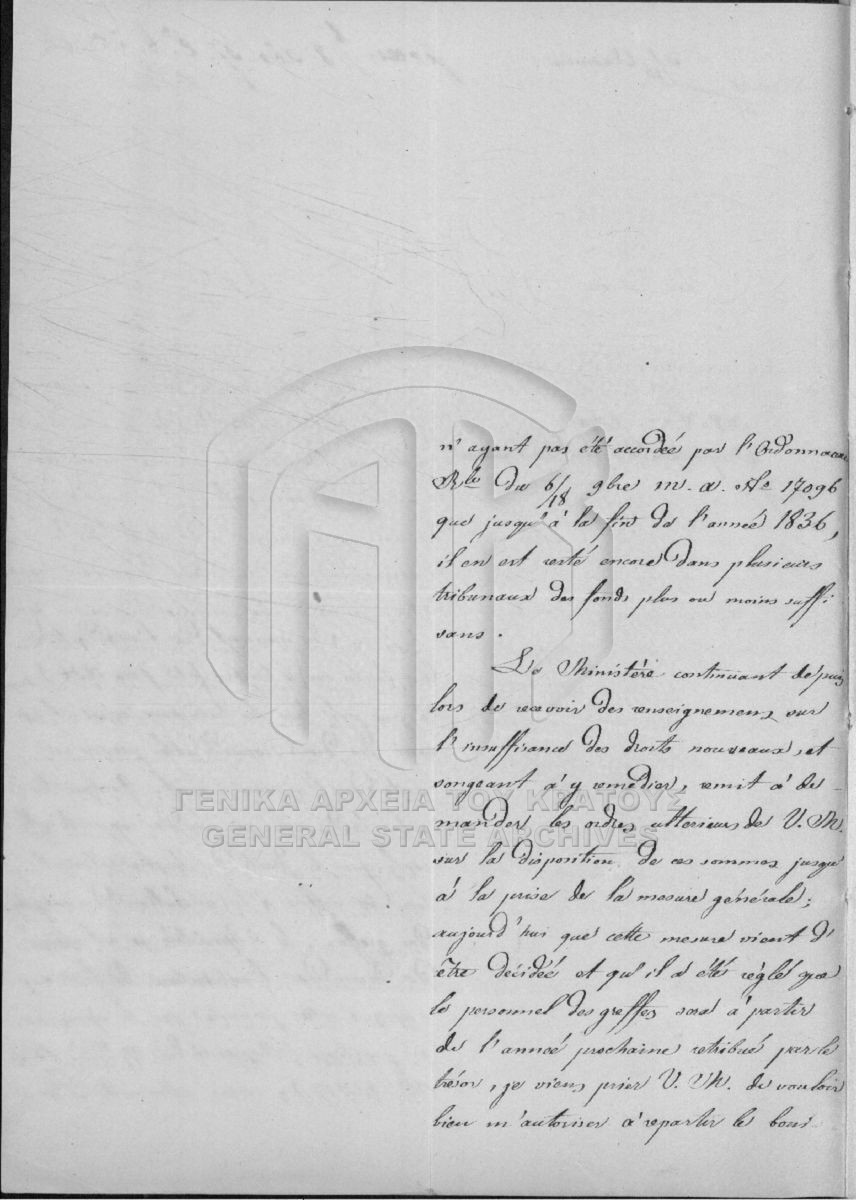 n'ayant pas été accordée par l'Ordonnance
Rle du 6/18 9bre m. a. No 17096
que jusqu'à la fin de l'année 1836,
il en est resté encore dans plusieurs
tribunaux des fonds plus ou moins suffi-
sans.
Le Ministère continuant depuis
lors de recevoir des renseignemens sur
l'insuffisance des droits nouveaux, et
songeant à y remédier, remit à de-
mander les ordres ulterieurs de V. M.
sur la disposition de ces sommes jusqu'
à la prise de la mesure générale;
aujourd'hui que cette mesure vient d'
être décidée et qu'il a été réglé que
le personnel des greffes sera à partir
de l'année prochaine retribué par le
trésor, je viens prier V. M. de vouloir
bien m'autoriser à repartir le boni
ΓΕΝΙΚΑ ΑΡΧΕΙΑ ΤΟΥ ΚΡΑΤΟΥΣ
GENERAL STATE ARCHIVES